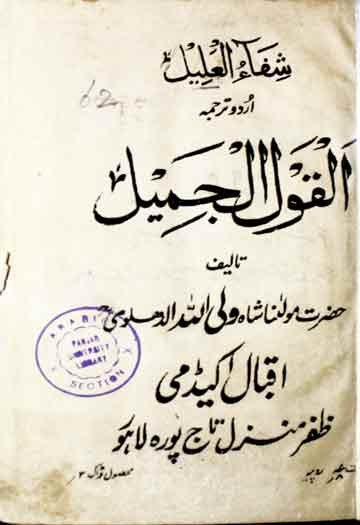 شفاء العلیل
اردو ترجمہ
القول الجمیل
تالیف
حضرت مولٰنا شاہ ولی اللہ الدھلوی
ARABIC
PANJAB
UNIVERSITY
LIBRARY
SECTION
اقبال اکیڈمی
ظفر منزل تاج پورہ لاہور
محصول ڈاک